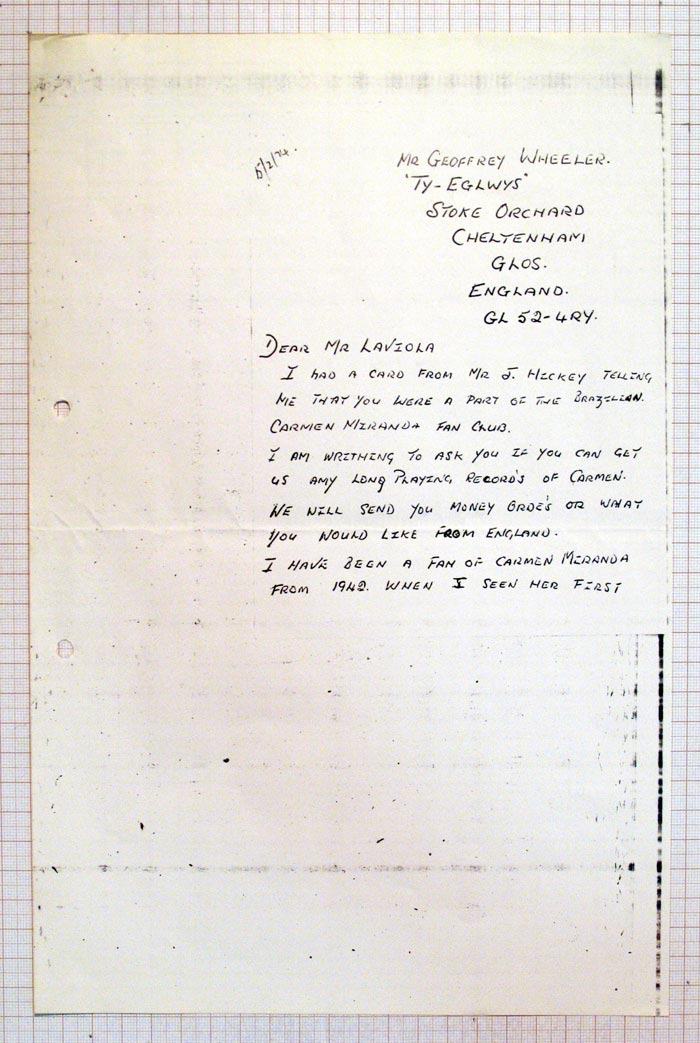 5/2/74.
MR GEOFFREY WHEELER.
'TY-EGLWYS'
STOKE ORCHARD
CHELTENHAM
GLOS.
ENGLAND.
GL 52-4RY.
DEAR MR LAVIOLA
I HAD A CARD FROM MR J. HICKEY TELLING
ME THAT YOU WERE A PART OF THE BRAZILIAN.
CARMEN MIRANDA FAN CLUB.
I AM WRITHING TO ASK YOU IF YOU CAN GET
US AMY LONG PLAYING RECORD'S OF CARMEN.
WE WILL SEND YOU MONEY ORDE'S OR WHAT
YOU WOULD LIKE FROM ENGLAND.
I HAVE BEEN A FAN OF CARMEN MIRANDA
FROM 1942. WHEN I SEEN HER FIRST